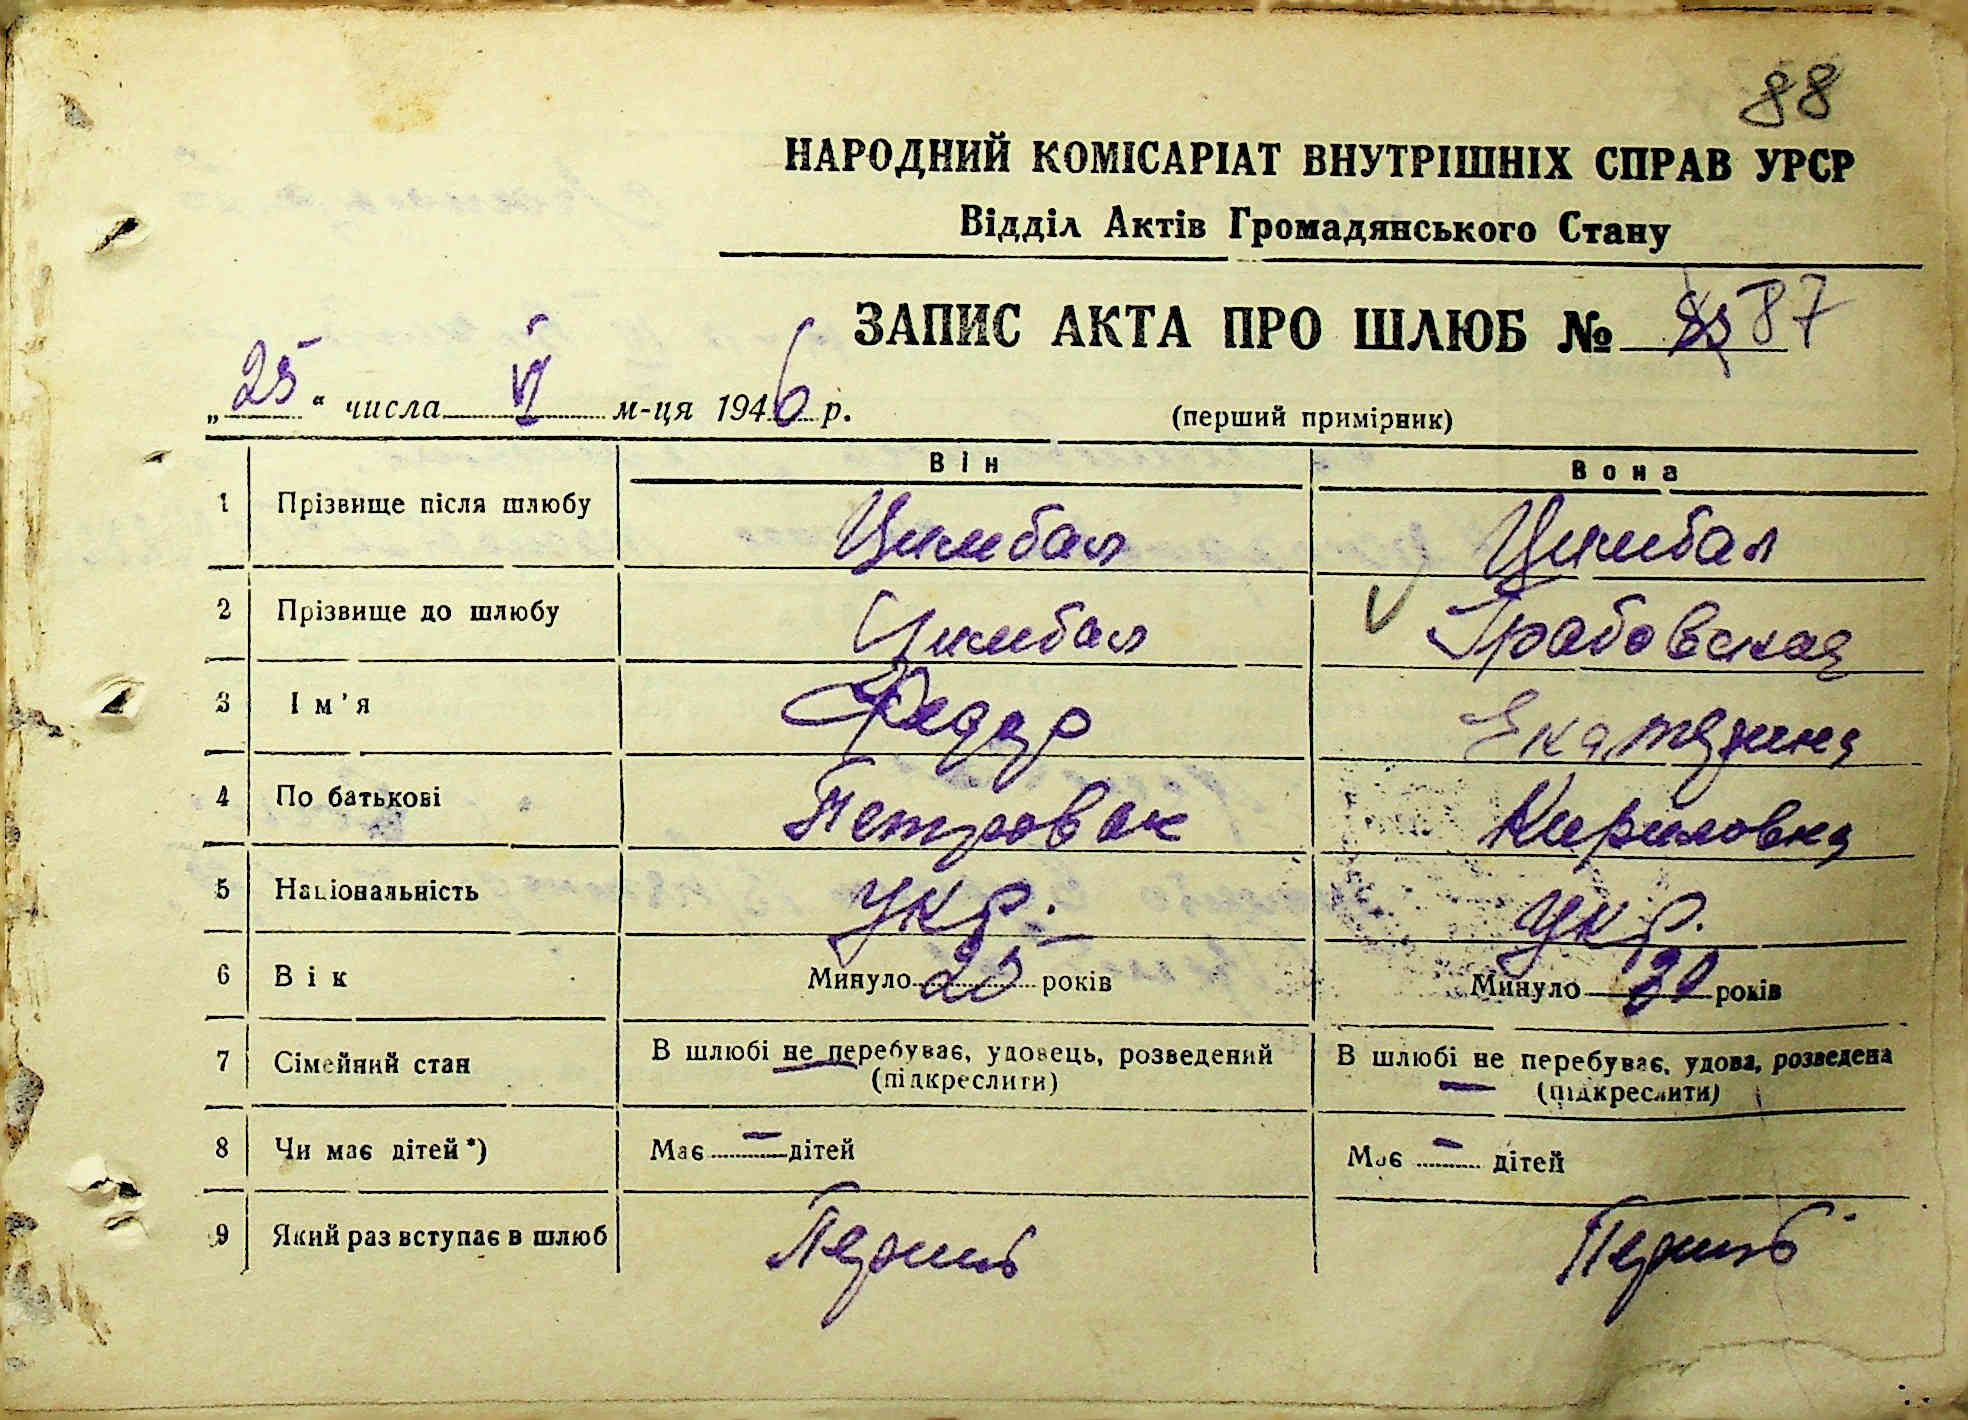 88
НАРОДНИЙ КОМІСАРІАТ ВНУТРІШНІХ СПРАВ УРСР
Відділ Актів Громадянського Стану
ЗАПИС АКТА ПРО ШЛЮБ № 87
„25“ числа VI м-ця 1946 р. (перший примірник)
Він Вона
1 Прізвище після шлюбу Цимбал Цимбал
2 Прізвище до шлюбу Цимбал Грабовская
3 Ім'я Федор Екатерина
4 По батькові Петрович Кириловна
5 Національність укр. укр.
6 Вік Минуло 25 років Минуло років
7 Сімейний стан В шлюбі не перебуває, удовець, розведений (підкреслити) В шлюбі не перебуває, удова, розведена (підкреслити)
8 Чи має дітей*) Має — дітей Має — дітей
9 Який раз вступає в шлюб Перший Перший